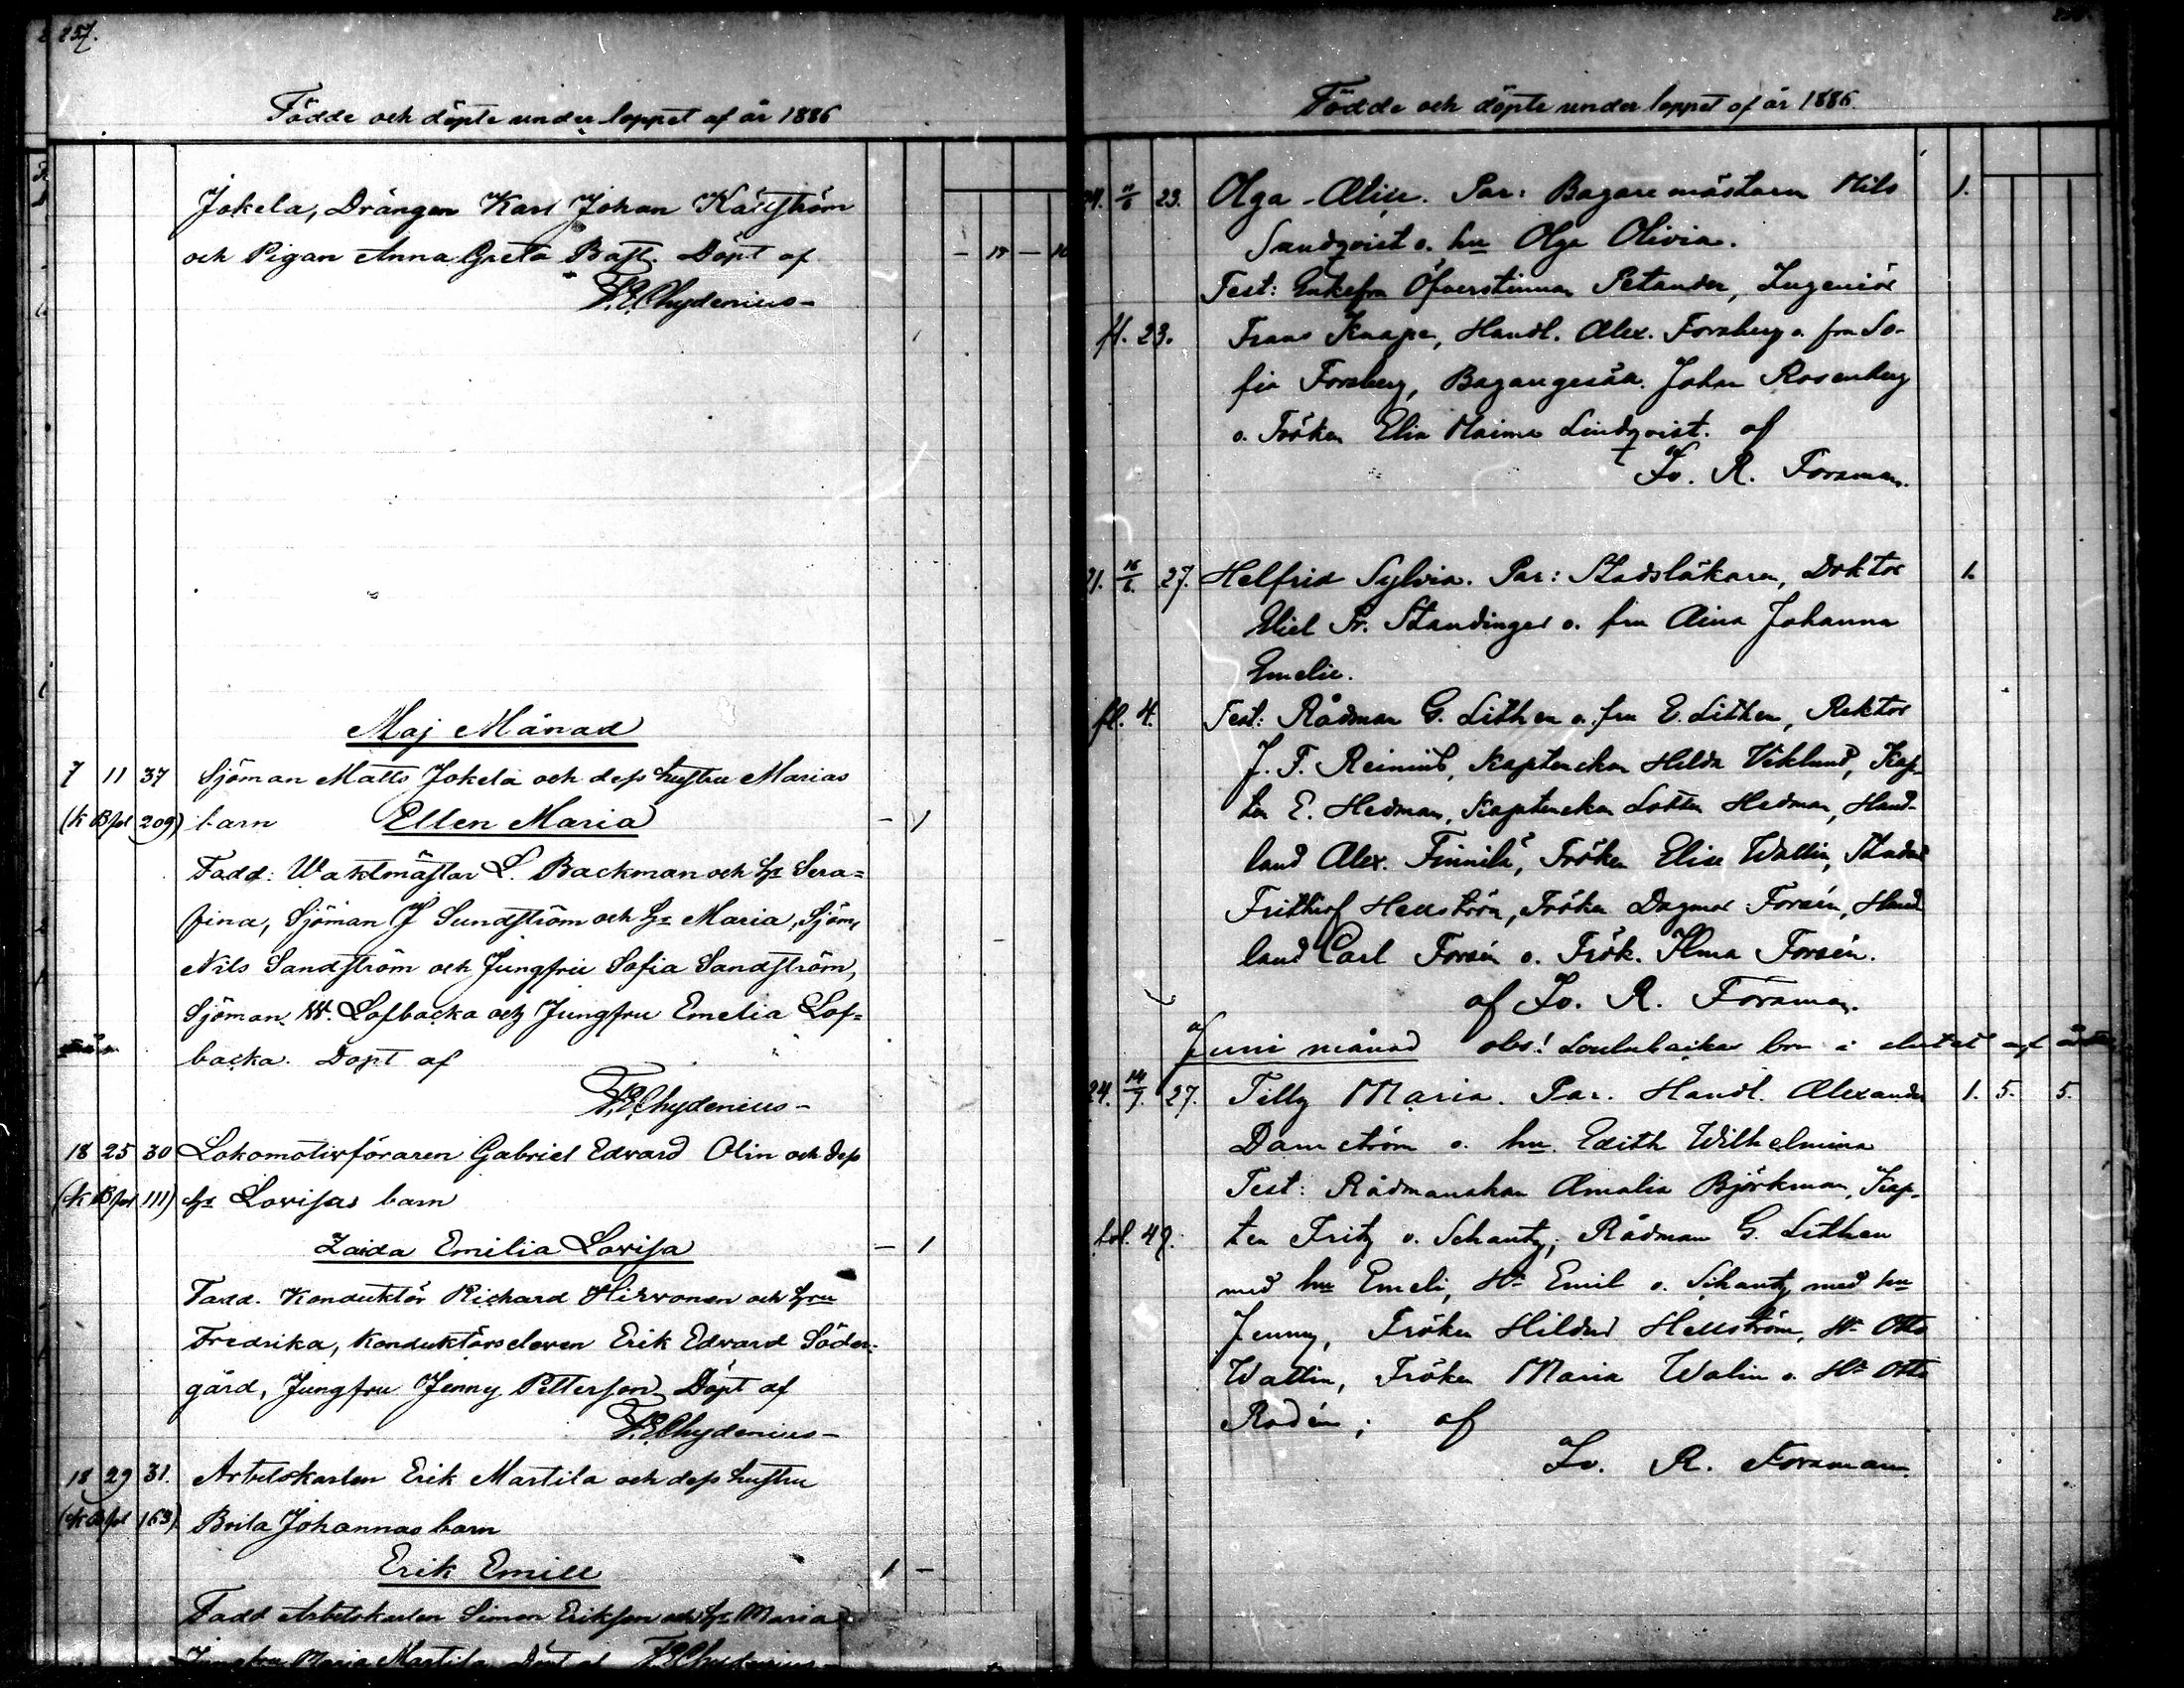 257.
Födde och döpte under loppet af år 1886
Jokela, Drängen Karl Johan Källström
och Pigan Anna Greta Bast. Döpt af
F.E. Chydenius
Maj Månad
7 11 37 Sjöman Matts Jokela och dess hustru Marias
(K B fol 209) barn Ellen Maria - 1
Fadd: Waktmästar L. Backman och Hs Sera=
fina, Sjöman J Sundström och Hs Maria, Sjöm,
Nils Sandström och Jungfru Sofia Sandström,
Sjöman W. Lofbacka och Jungfru Emelia Lof=
backa. Döpt af
F.E. Chydenius
18 25 30 Lokomotivföraren Gabriel Edvard Olin och dess
(K B fol 111) Hs Lovisas barn
Zaida Emilia Lovisa - 1
Fadd. Konduktör Richard Hirvonen och Hru
Fredrika, Konduktörseleven Erik Edvard Söder-
gård, Jungfru Jenny Petterson Döpt af
F.E. Chydenius
18 29 31. Arbetskarlen Erik Martila och dess hustru
(K B fol 163) Brita Johannas barn
Erik Emill 1 -
Fadd Arbetskarlen Simon Erikson och Hs Maria
Jungfru Maria Martila Döpt af F.E. Chydenius
Födde och döpte under loppet af år 1886
23. Olga Alice. Par: Bagaremästaren Nils 1.
Sandqvist o. hu Olga Olivia.
Test: Enkefru Öfverstinnan Petander, Ingeniör
fl. 23. Frans Knape, Handl. Alex. Forsberg o. fru So-
fia Forsberg, Bagaregesän. Johan Rosenberg
o. Fröken Elin Maime Lindqvist. af
Fo. R. Forsman.
21. 16/6. 27. Helfrid Sylvia. Par: Stadsläkaren, Doktor 1.
Eliel Fr. Standinger o. fru Aina Johanna
Emelie.
fl. 4. Test: Rådman G. Lithen o. fru E. Lithen, Rektor
J. F. Reinius, Kaptenskan Hilda Viklund, Kap-
ten E. Hedman, Kaptenskan Lotten Hedman, Hand-
land Alex. Finnilä, Fröken Elise Wallin,
Frithiof Hellström, Fröken Dagmar Forsén, Hand
land Carl Forsén o. Frök. Ilma Forsén.
af Fo. R. Forsman.
Juni månad obs! i slutet af
24. 14/7. 27. Tilly Maria. Par. Handl. Alexander 1. 5. 5.
Damström o. hu. Edith Wilhelmina
Test: Rådmanskan Amalia Björkman, Kap-
fol. 49. ten Fritz v. Schantz, Rådman G. Lithen
med hu Emeli, Hr Emil v. Schantz med hu
Jenny, Fröken Hildur Hellström, Hr Otto
Wallin, Fröken Maria Walin o. Hr Otto
Rodén; af
Fo. R. Forsman.